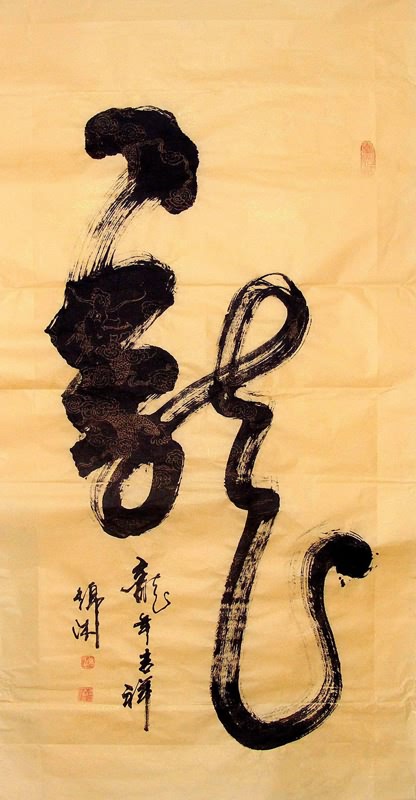 龍
龍年吉祥